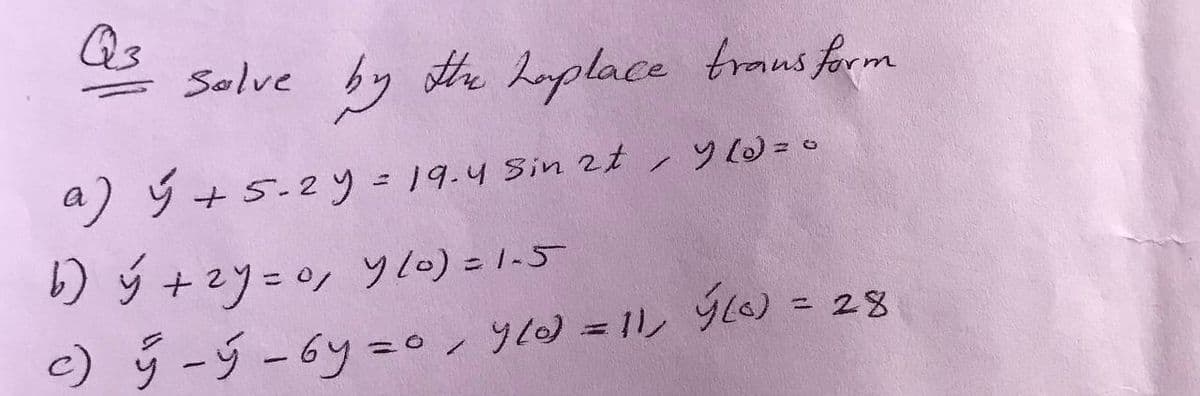 Q3 Solve by the Laplace transform
a) ý + 5.2y = 19.4 Sin 2t, y(0)=0
b) ý + 2y = 0, y(0) = 1.5
c) y̋ - ý - 6y = 0, y(0) = 11, ý(0) = 28